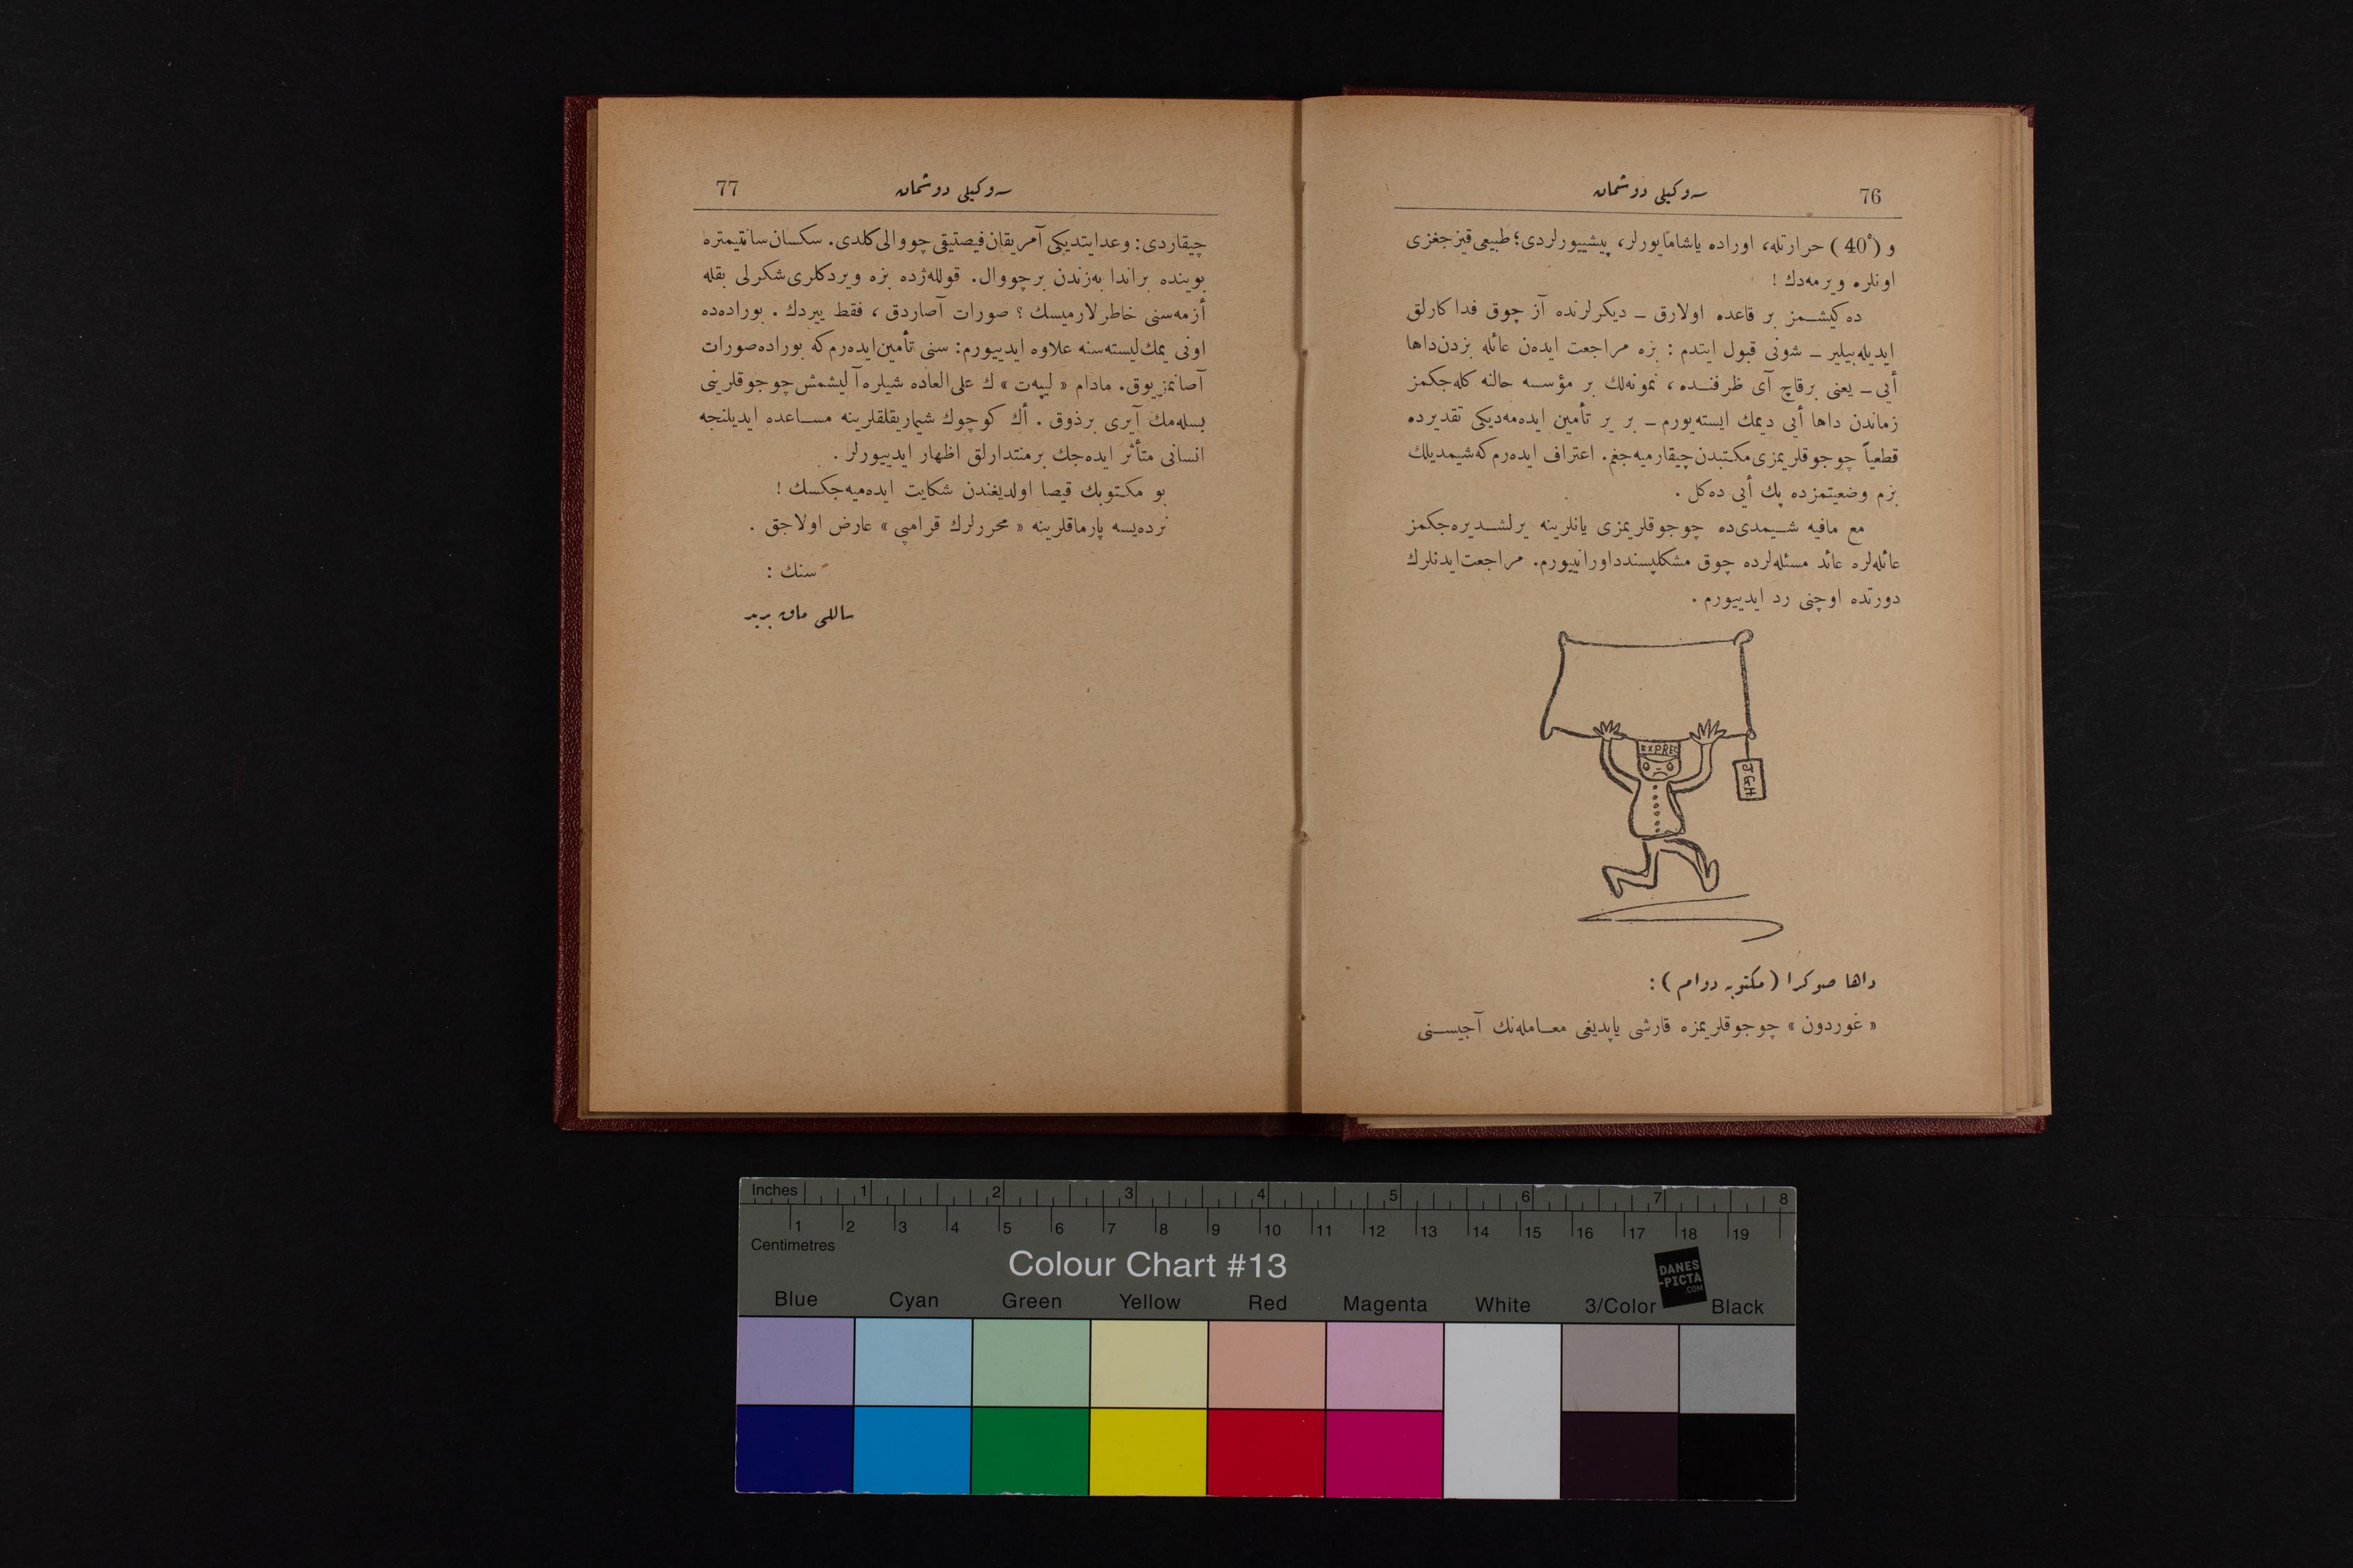 76
سوكيلی دوشمان
و (40°) حرارتله، اوراده ياشامايورلر، پيشييورلردی؛ طبيعی قيزجغزی
اونلره ويرمه‌دك !
ده كيشـمز بر قاعده اولارق ــ ديكرلرنده آز چوق فدا كارلق
ايديله‌بيلير ــ شونی قبول ايتدم : بزه مراجعت ايده‌ن عائله بزدن داها
أيی ــ يعنی برقاچ آی ظرفنـده ، نمونه‌لك بر مؤسسه حالنه كله‌جكمز
زماندن داها أيی ديمك ايسته‌يورم ــ بر ير تأمين ايده‌مه‌ديكی تقديرده
قطعياً چوجوقلريمزی مكتبدن چيقارميه‌جغم. اعتراف ايده‌رم كه شيمديلك
بزم وضعيتمزده پك أيی ده‌كل .
مع مافيه شـيمدی‌ده چوجوقلريمزی يانلرينه يرلشـديره‌جكمز
عائله‌لره عائد مسئله‌لرده چوق مشكلپسند داورانييورم. مراجعت ايدنلرك
دورتده اوچنی رد ايدييورم .
EXPRES
JGH
داها صوكرا ( مكتوبه دوام ) :
« غوردون » چوجوقلريمزه قارشی ياپديغی معـامله‌نك آجيسـنی
77
سوكيلی دوشمان
چيقاردی: وعدايتديكی آمريقان فيصتيقی چووالی كلدی. سكسان سانتيمتره
بوينده براندا به‌زندن برچووال. قولله‌ژده بزه ويردكلری شكرلی بقله
أزمه‌سنی خاطرلارميسك ؟ صورات آصاردق ، فقط ييردك . بوراده‌ده
اونی يمك ليسته‌سنه علاوه ايدييورم: سنی تأمين ايده‌رم كه بوراده صورات
آصانمز يوق. مادام « ليپه‌ت » ك علی‌العاده شيلره آليشمش چوجوقلرينی
بسله‌مك آيری برذوق . أك كوچوك شيماريقلقلرينه مسـاعده ايديلنجه
انسانی متأثر ايده‌جك برمنتدارلق اظهار ايدييورلر .
بو مكتوبك قيصا اولديغندن شكايت ايده‌ميه‌جكسك !
نرده‌يسه پارماقلرينه « محررلرك قرامپی » عارض اولاجق .
سنك :
ساللی ماق بريد
Inches 1 2 3 4 5 6 7 8
1 2 3 4 5 6 7 8 9 10 11 12 13 14 15 16 17 18 19
Centimetres
Colour Chart #13
DANES
-PICTA
.COM
Blue Cyan Green Yellow Red Magenta White 3/Color Black